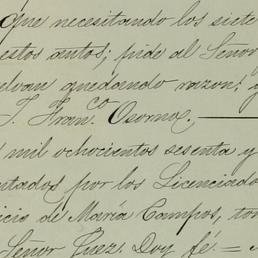 que necesitando los siete
estos autos; pide al Señor
vuelvan quedando razon; y
J. Fran.co Osornox.
mil ochocientos sesenta y
tados por los Licenciado
icio de María Campos, tom
Señor Juez. Doy fé. =